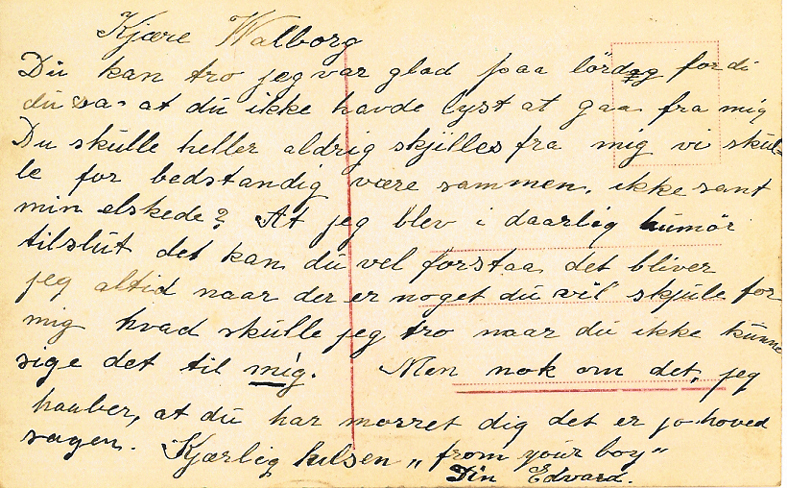 Kjære Walborg
Du kan tro jeg var glad paa lördag fordi
du sa at du ikke havde lyst at gaa fra mig
Du skulle heller aldrig skjilles fra mig vi skul-
le for bedstandig være sammen, ikke sant
min elskede? At jeg blev i daarlig humör
tilslut det kan du vel forstaa det bliver
jeg altid naar der er noget du vil skjule for
mig hvad skulle jeg tro naar du ikke kunne
sige det til mig. Men nok om det, jeg
haaber, at du har morret dig det er jo hoved
sagen. Kjærlig hilsen „from your boy"
Din Edvard.